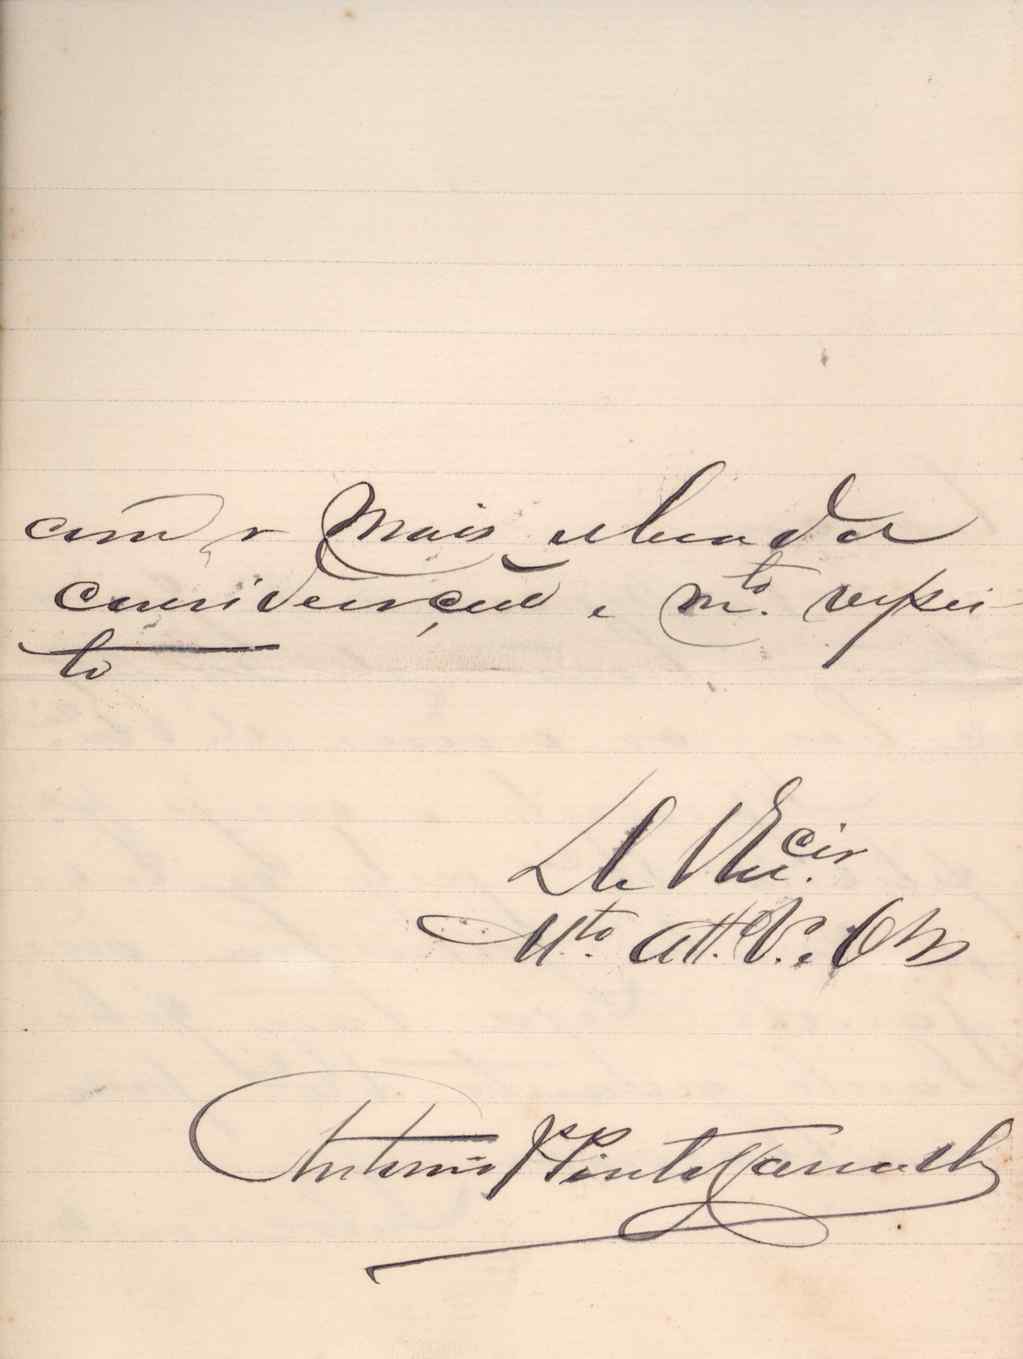 com a mais elevada
consideração e m.to respei-
to
De V Exc.cia
M.to Att.º V.or e Obr
Antonio Pinto